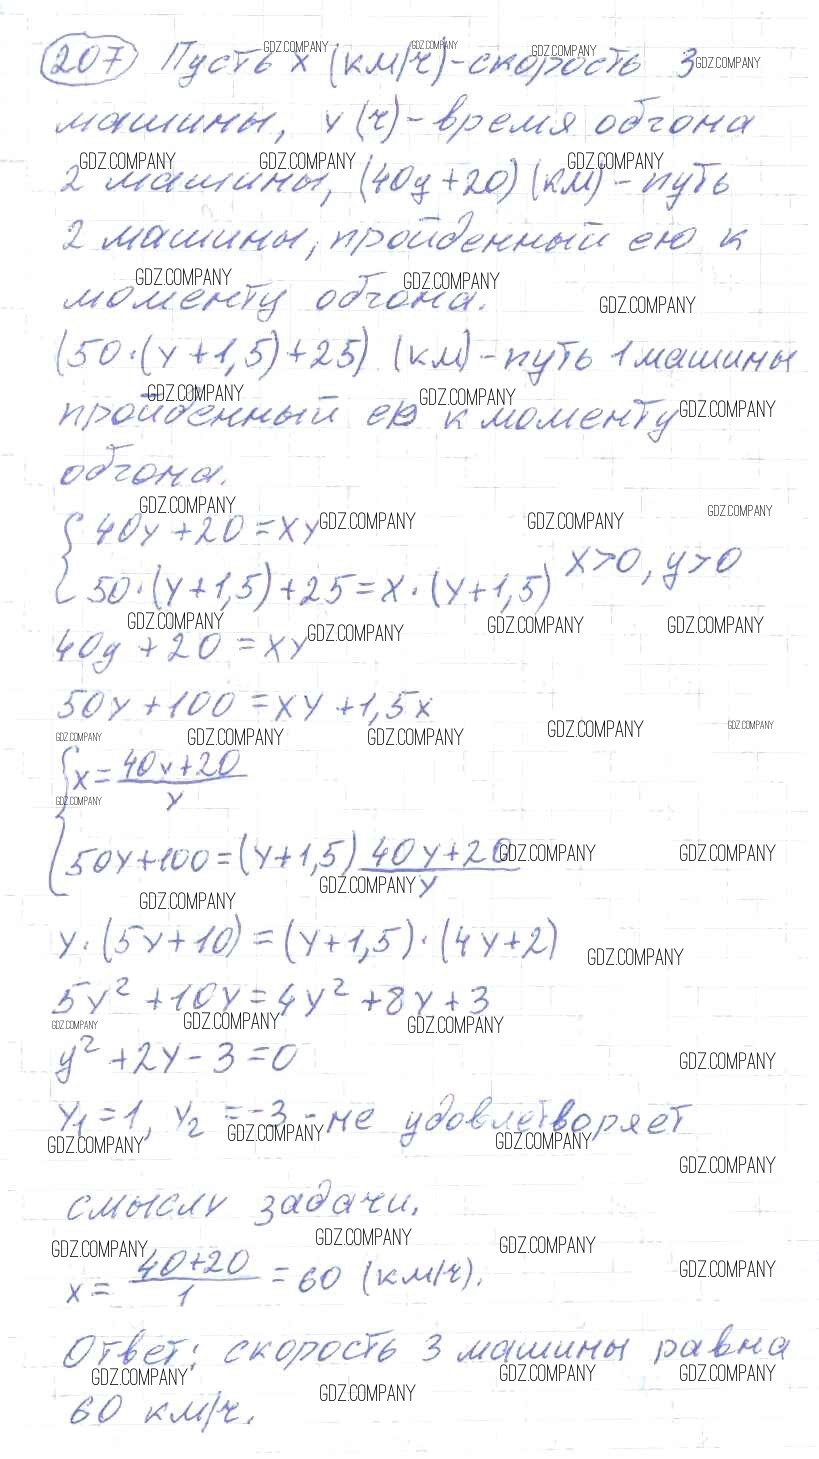 207 Пусть x (км/ч) - скорость 3
машины, y (ч) - время обгона
2 машины, (40y + 20) (км) - путь
2 машины, пройденный ею к
моменту обгона.
(50·(y+1,5)+25) (км) - путь 1 машины
пройденный ею к моменту
обгона.
40y + 20 = xy
50·(y+1,5)+25 = x·(y+1,5) x>0, y>0
40y + 20 = xy
50y + 100 = xy + 1,5x
x = (40y+20)/y
50y+100 = (y+1,5) (40y+20)/y
y·(5y+10) = (y+1,5)·(4y+2)
5y² + 10y = 4y² + 8y + 3
y² + 2y - 3 = 0
y₁ = 1, y₂ = -3 - не удовлетворяет
смыслу задачи.
x = (40+20)/1 = 60 (км/ч).
Ответ: скорость 3 машины равна
60 км/ч.
GDZ.COMPANY